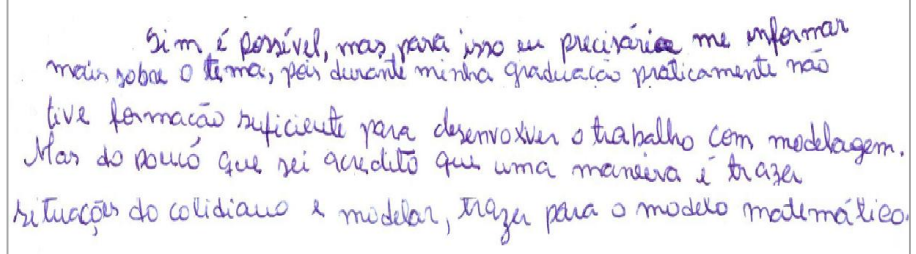 Sim, é possível, mas para isso eu precisária me informar
mais sobre o tema, pois durante minha graduação praticamente não
tive formação suficiente para desenvolver o trabalho com modelagem.
Mas do pouco que sei acredito que uma maneira é trazer
situações do cotidiano e modelar, trazer para o modelo matemático.